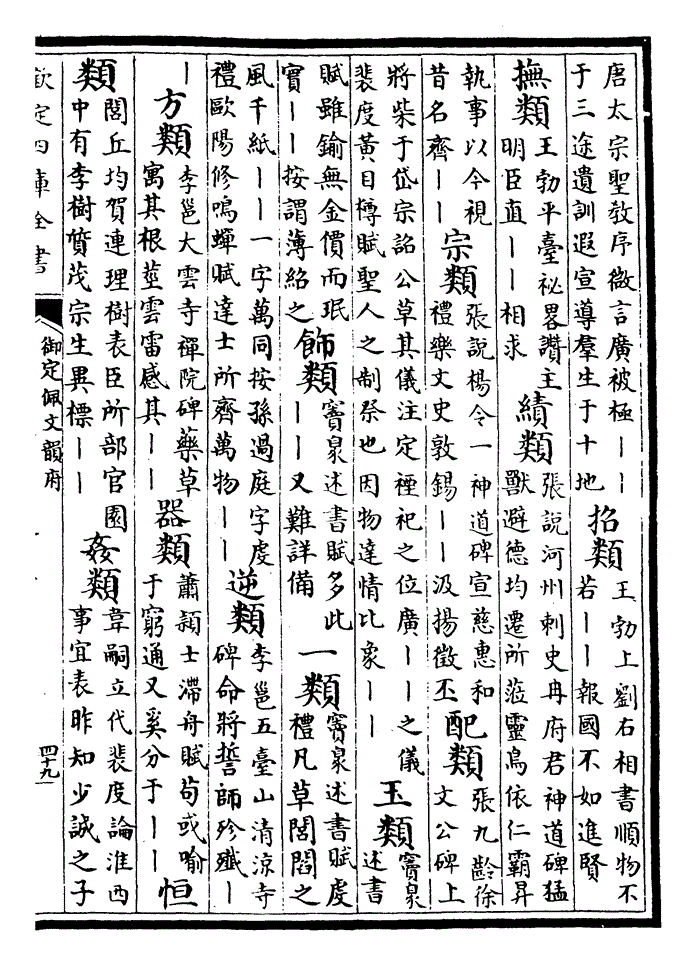 唐太宗聖教序微言廣被極——
于三途遺訓遐宣導羣生于十地
招類
王勃上劉右相書順物不
若——報國不如進賢
撫類
王勃平臺祕畧讚主
明臣直——相求
績類
張說河州刺史冉府君神道碑猛
獸避德均遷所蒞靈鳥依仁霸昇
執事以今視
昔名齊——
宗類
張說楊令一神道碑宣慈惠和
禮樂文史敦錫——汲揚徵丕
配類
張九齡徐
文公碑上
將柴于岱宗詔公草其儀注定禋祀之位廣——之儀
裴度黃目樽賦聖人之制祭也因物達情比象——
玉類
竇臮
述書
賦雖鍮無金價而珉
實——按謂薄紹之
飾類
竇臮述書賦多此
——又難詳備
一類
竇臮述書賦虔
禮凡草閭閻之
風千紙——一字萬同按孫過庭字虔
禮歐陽修鳴蟬賦達士所齊萬物——
逆類
李邕五臺山清涼寺
碑命將誓師殄殲—
—
方類
李邕大雲寺禪院碑藥草
寓其根莖雲雷感其——
器類
蕭潁士滯舟賦苟或喻
于窮通又奚分于——
恒
類
閭丘均賀連理樹表臣所部官園
中有李樹質茂宗生異標——
姦類
韋嗣立代裴度論淮西
事宜表昨知少誠之子
欽定四庫全書
御定佩文韻府
四十九